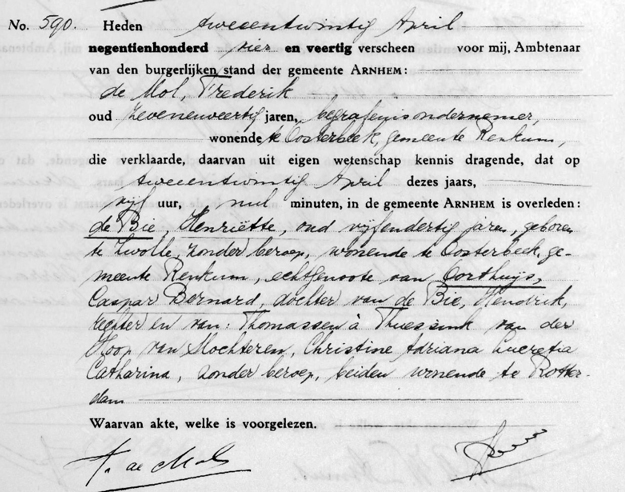 No. 590. Heden tweeentwintig April
negentienhonderd vier en veertig verscheen voor mij, Ambtenaar
van den burgerlijken stand der gemeente ARNHEM:
de Mol, Frederik
oud zevenenveertig jaren, begrafenisondernemer,
wonende te Oosterbeek, gemeente Renkum,
die verklaarde, daarvan uit eigen wetenschap kennis dragende, dat op
tweeentwintig April dezes jaars,
vijf uur, nul minuten, in de gemeente ARNHEM is overleden:
de Bie, Henriëtte, oud vijfendertig jaren, geboren
te Zwolle, zonder beroep, wonende te Oosterbeek, ge-
meente Renkum, echtgenoote van Oorthuijs,
Caspar Bernard, dochter van de Bie, Hendrik,
rechter en van: Thomassen à Thuessink van der
Hoop van Slochteren, Christine Adriana Lucretia
Catharina, zonder beroep, beiden wonende te Rotter-
dam
Waarvan akte, welke is voorgelezen.
F. de Mol